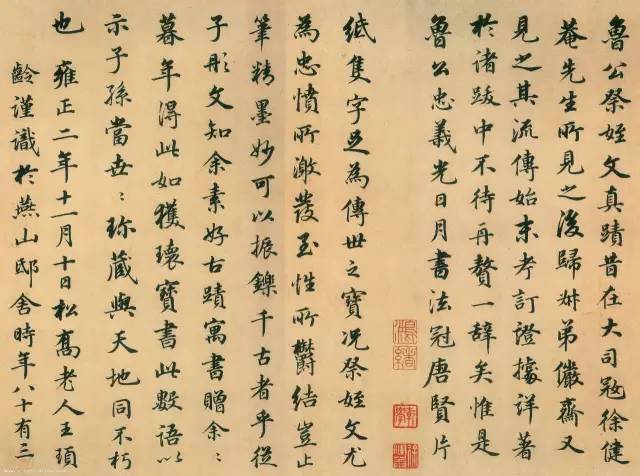 魯公祭姪文真蹟昔在大司寇徐健
菴先生所見之後歸舛弟儼齋又
見之其流傳始末考訂證據詳著
於諸跋中不待再贅一辭矣惟是
魯公忠義光日月書法冠唐賢片
紙隻字足為傳世之寶況祭姪文尤
為忠憤所激發至性所鬱結豈止
筆精墨妙可以振鑠千古者乎從
子彤文知余素好古蹟寓書贈余〻
暮年得此如獲瓌寶書此數語以
示子孫當世〻珎藏與天地同不朽
也 雍正二年十一月十日松喬老人王頊
齡謹識於燕山邸舍時年八十有三